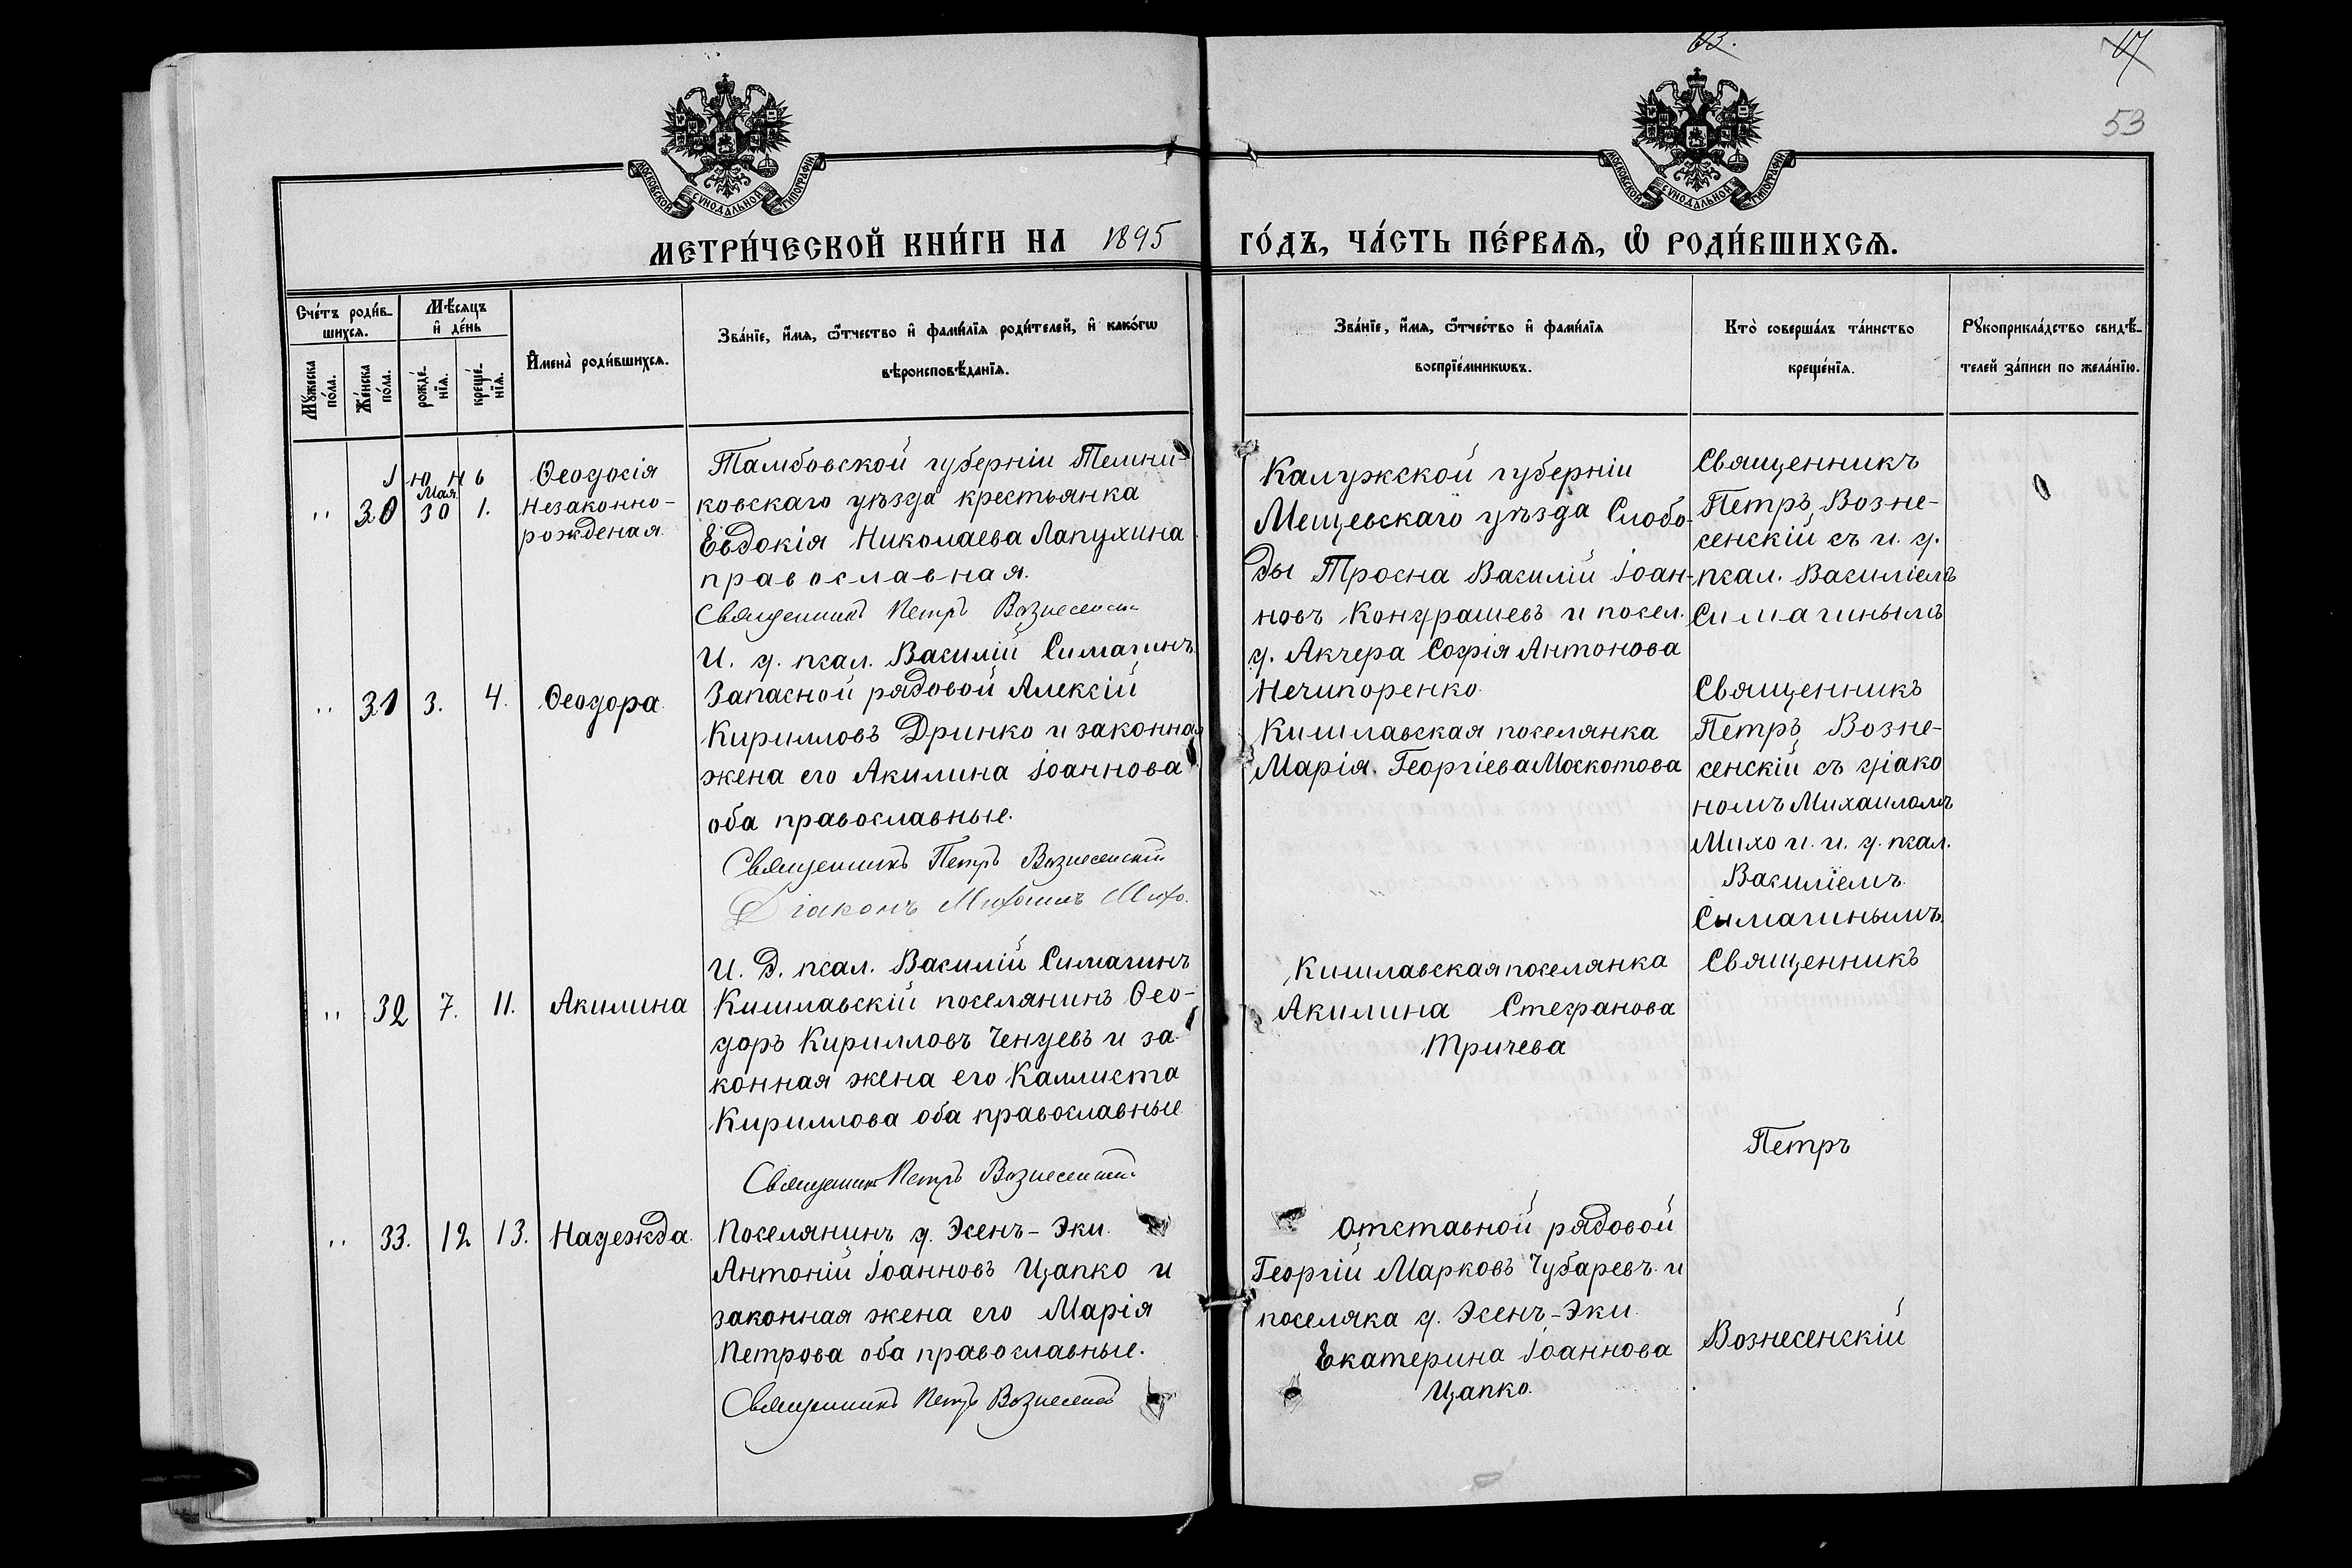 63.
17
53
МОСКОВСКОЙ СѴНОДАЛЬНОЙ ТИПОГРАФІИ
МОСКОВСКОЙ СѴНОДАЛЬНОЙ ТИПОГРАФІИ
МЕТРИ́ЧЕСКОЙ КНИ́ГИ НА 1895 ГО́ДЪ, ЧА́СТЬ ПЕ́РВАѦ, Ѽ РОДИ́ВШИХСѦ.
Сче́тъ роди́в-
шихсѧ.
Мꙋ́жеска по́ла.
Же́нска по́ла.
Мѣ́сѧцъ
и҆ де́нь
рожде́-
нїѧ.
креще́-
нїѧ.
И҆мена̀ роди́вшихсѧ.
Зва́нїе, и҆́мѧ, ѻ҆́тчество и҆ фами́лїѧ роди́телей, и҆ како́гѡ
вѣроисповѣ́данїѧ.
Зва́нїе, и҆́мѧ, ѻ҆́тчество и҆ фами́лїѧ
воспрїе́мникѡвъ.
Кто̀ соверша́лъ та́инство
креще́нїѧ.
Рꙋкоприкла́дство свидѣ́-
телей за́писи по жела́нїю.
Іюнь
" 30 Мая 30 1.
Ѳеодосія
Незаконно-
рожденая.
Тамбовской губерніи Темни-
ковскаго уѣзда крестьянка
Евдокія Николаева Лапухина
православная.
Священникъ Петръ Вознесенскій
И. д. псал. Василій Симагинъ
Калужской губерніи
Мещевскаго уѣзда Слобо-
ды Тросна Василій Іоан-
новъ Кондрашевъ и посел.
д. Акчера Софія Антонова
Нечипоренко.
Священникъ
Петръ Возне-
сенскій съ и. д.
псал. Василіемъ
Симагинымъ
" 31 3. 4. Ѳеодора.
Запасной рядовой Алексій
Кирилловъ Дринко и законная
жена его Акилина Іоаннова
оба православные.
Священникъ Петръ Вознесенскій
Діаконъ Михаилъ Михо.
И. Д. псал. Василій Симагинъ
Кишлавская поселянка
Марія Георгіева Москотова
Священникъ
Петръ Возне-
сенскій съ діако
номъ Михаиломъ
Михо и и. д. псал.
Василіемъ
Симагинымъ.
" 32 7. 11. Акилина
Кишлавскій поселянинъ Ѳео-
доръ Кирилловъ Ченцевъ и за-
конная жена его Каллиста
Кириллова оба православные
Священникъ Петръ Вознесенскій
Кишлавская поселянка
Акилина Стефанова
Тричева
Священникъ
Петръ
" 33. 12 13. Надежда.
Поселянинъ д. Эсенъ-Эки.
Антоній Іоанновъ Цапко и
законная жена его Марія
Петрова оба православные.
Священникъ Петръ Вознесенскій
Отставной рядовой
Георгій Марковъ Чубаревъ и
поселяка д. Эсенъ-Эки
Екатерина Іоаннова
Цапко.
Вознесенскій